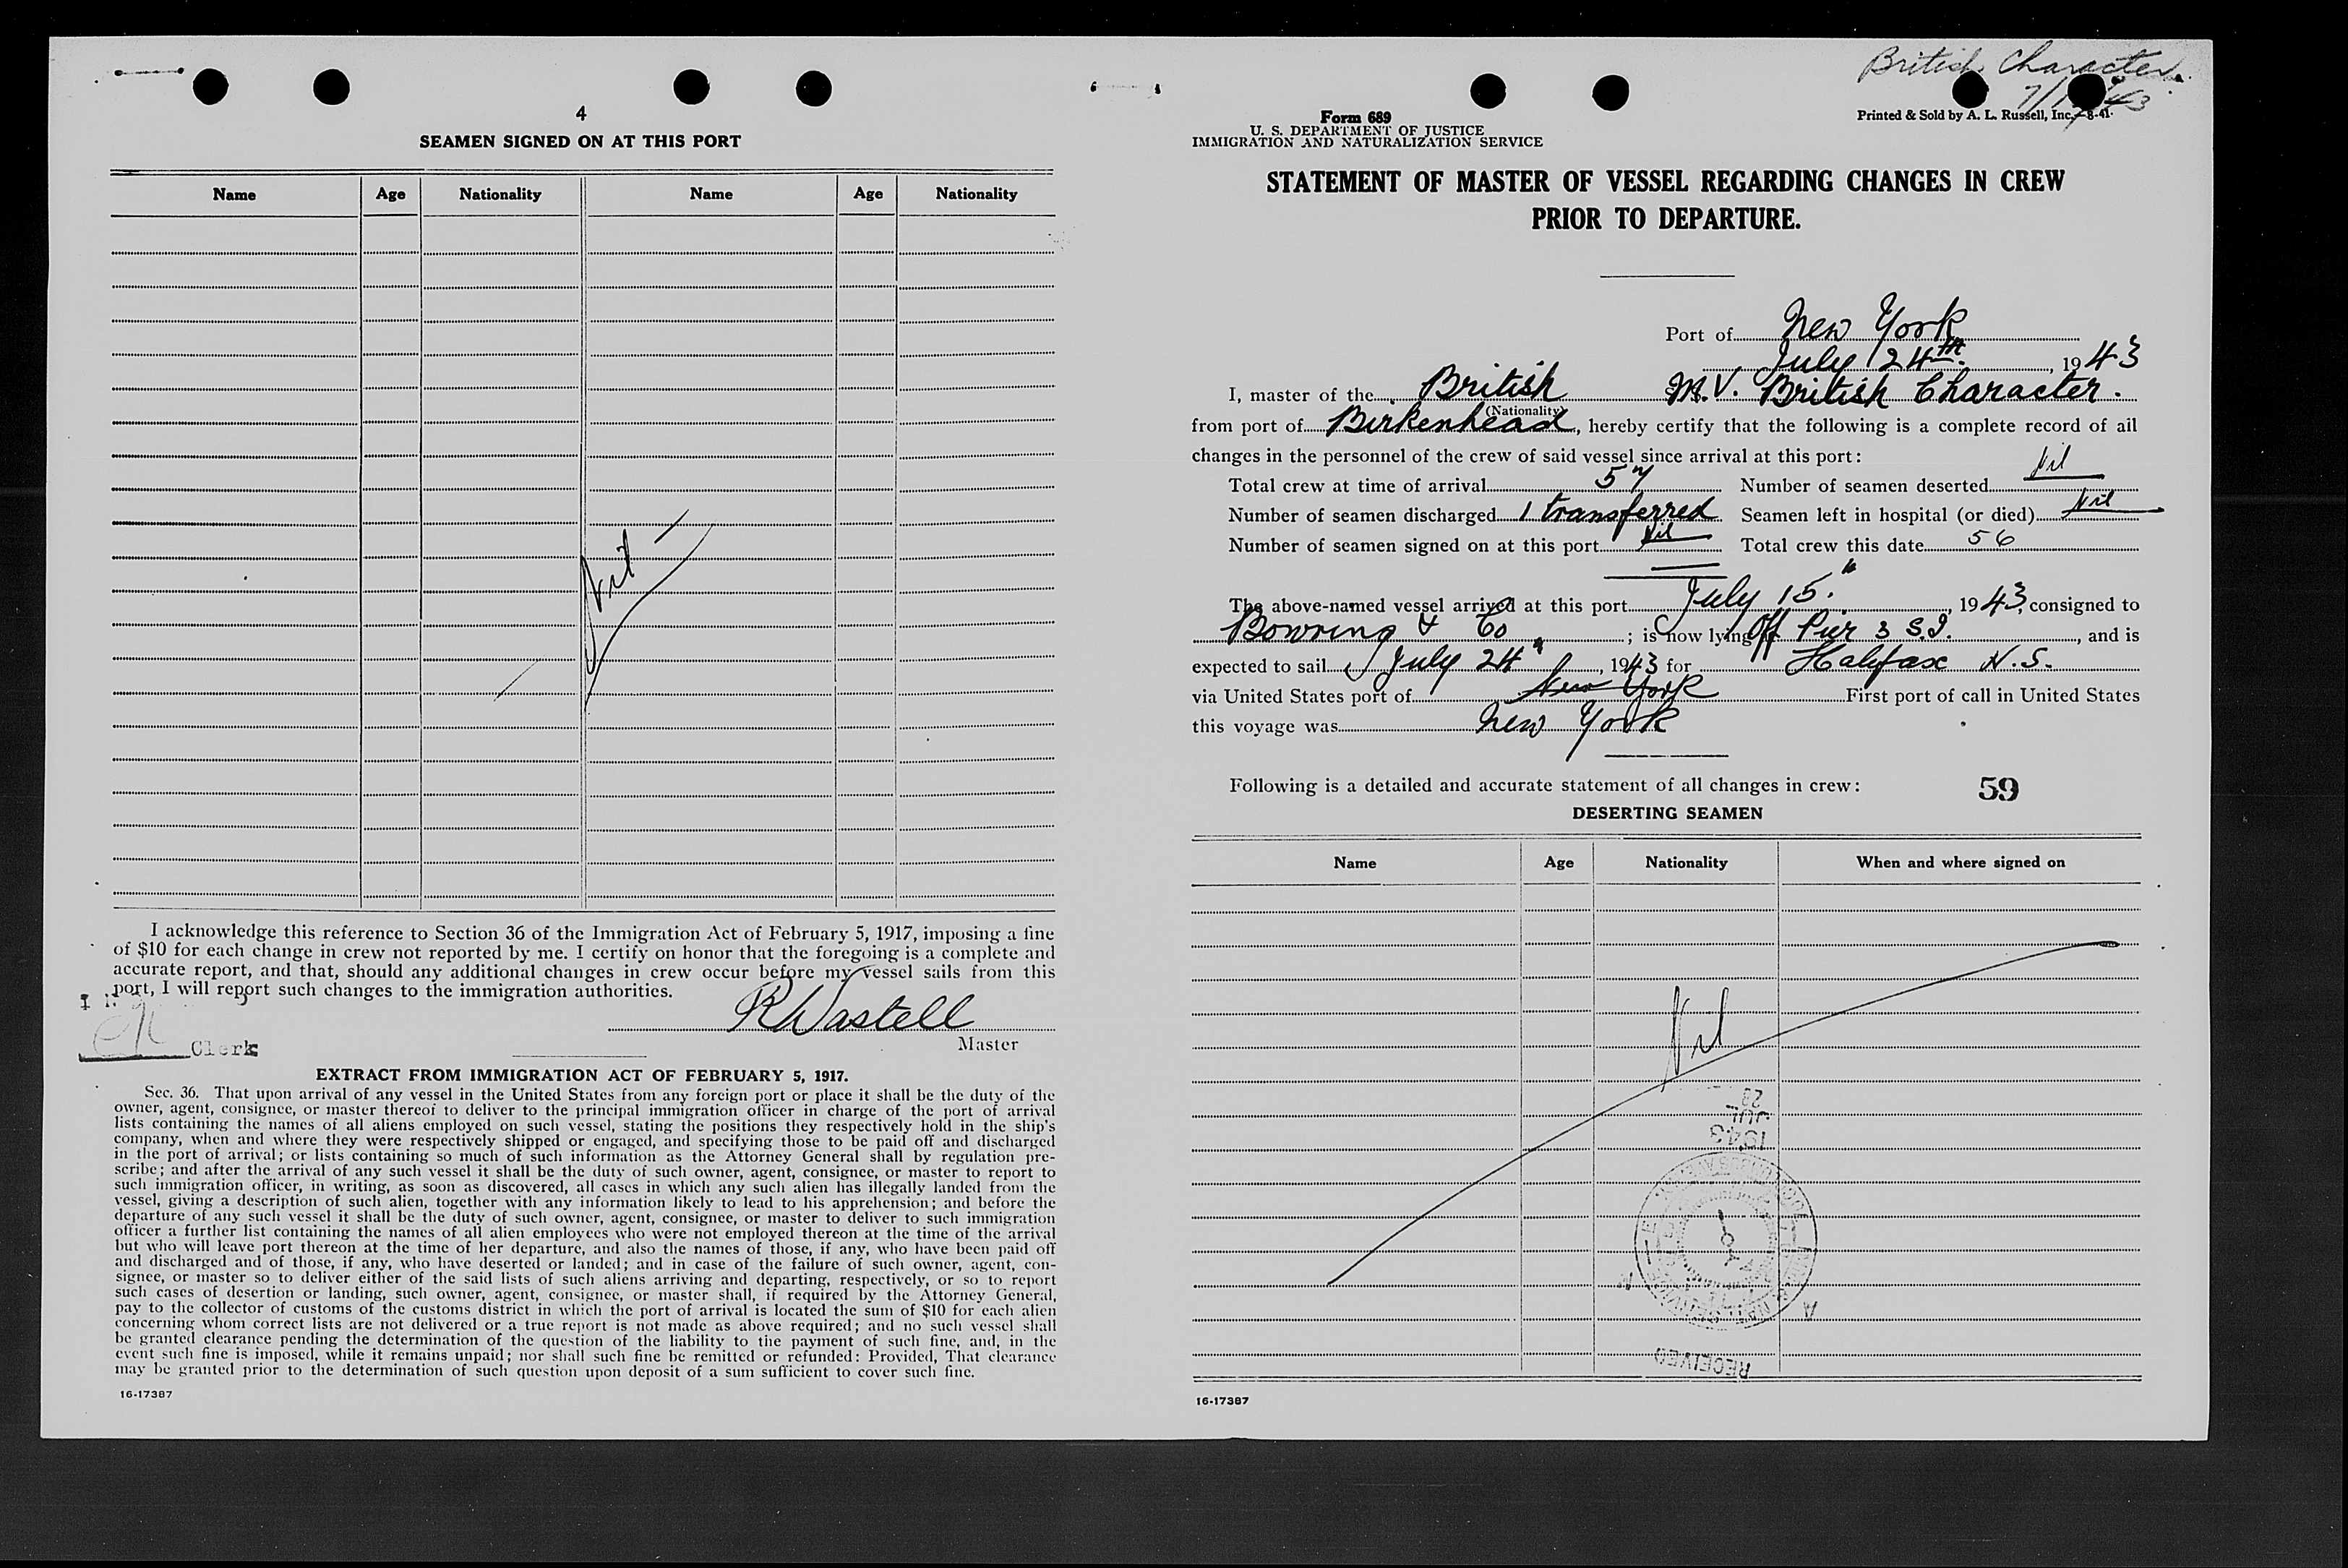 4
SEAMEN SIGNED ON AT THIS PORT
Name Age Nationality Name Age Nationality
Nil
I acknowledge this reference to Section 36 of the Immigration Act of February 5, 1917, imposing a fine
of $10 for each change in crew not reported by me. I certify on honor that the foregoing is a complete and
accurate report, and that, should any additional changes in crew occur before my vessel sails from this
port, I will report such changes to the immigration authorities.
R Wastell
Clerk
Master
EXTRACT FROM IMMIGRATION ACT OF FEBRUARY 5, 1917.
Sec. 36. That upon arrival of any vessel in the United States from any foreign port or place it shall be the duty of the
owner, agent, consignee, or master thereof to deliver to the principal immigration officer in charge of the port of arrival
lists containing the names of all aliens employed on such vessel, stating the positions they respectively hold in the ship's
company, when and where they were respectively shipped or engaged, and specifying those to be paid off and discharged
in the port of arrival; or lists containing so much of such information as the Attorney General shall by regulation pre-
scribe; and after the arrival of any such vessel it shall be the duty of such owner, agent, consignee, or master to report to
such immigration officer, in writing, as soon as discovered, all cases in which any such alien has illegally landed from the
vessel, giving a description of such alien, together with any information likely to lead to his apprehension; and before the
departure of any such vessel it shall be the duty of such owner, agent, consignee, or master to deliver to such immigration
officer a further list containing the names of all alien employees who were not employed thereon at the time of the arrival
but who will leave port thereon at the time of her departure, and also the names of those, if any, who have been paid off
and discharged and of those, if any, who have deserted or landed; and in case of the failure of such owner, agent, con-
signee, or master so to deliver either of the said lists of such aliens arriving and departing, respectively, or so to report
such cases of desertion or landing, such owner, agent, consignee, or master shall, if required by the Attorney General,
pay to the collector of customs of the customs district in which the port of arrival is located the sum of $10 for each alien
concerning whom correct lists are not delivered or a true report is not made as above required; and no such vessel shall
be granted clearance pending the determination of the question of the liability to the payment of such fine, and, in the
event such fine is imposed, while it remains unpaid; nor shall such fine be remitted or refunded: Provided, That clearance
may be granted prior to the determination of such question upon deposit of a sum sufficient to cover such fine.
16-17387
British Character
Form 689
U. S. DEPARTMENT OF JUSTICE
IMMIGRATION AND NATURALIZATION SERVICE
Printed & Sold by A. L. Russell, Inc.-8-41
STATEMENT OF MASTER OF VESSEL REGARDING CHANGES IN CREW
PRIOR TO DEPARTURE.
Port of New York
July 24th, 1943
I, master of the British M.V. British Character.
(Nationality)
from port of Birkenhead, hereby certify that the following is a complete record of all
changes in the personnel of the crew of said vessel since arrival at this port:
Total crew at time of arrival 57 Number of seamen deserted Nil
Number of seamen discharged 1 transferred Seamen left in hospital (or died) Nil
Number of seamen signed on at this port Nil Total crew this date 56
The above-named vessel arrived at this port July 15", 1943, consigned to
Bowring & Co; is now lying Off Pier 3 S.I., and is
expected to sail July 24", 1943 for Halifax N.S.
via United States port of New York First port of call in United States
this voyage was New York
Following is a detailed and accurate statement of all changes in crew: 59
DESERTING SEAMEN
Name Age Nationality When and where signed on
Nil
28
JUL
1943
RECEIVED
16-17387